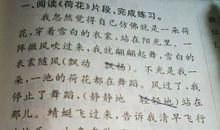 一、阅读《荷花》片段，完成练习。
我忽然觉得自己仿佛就是一朵荷
花，穿着雪白的衣裳，站在阳光里。一
阵微风吹过来，我就翩翩起舞，雪白的
衣裳随风（飘动 飘扬）。不光是我一
朵，一池的荷花都在舞蹈。风过了，我
停止了舞蹈，（静静地 轻轻地）站在
那儿。蜻蜓飞过来，告诉我清早飞行